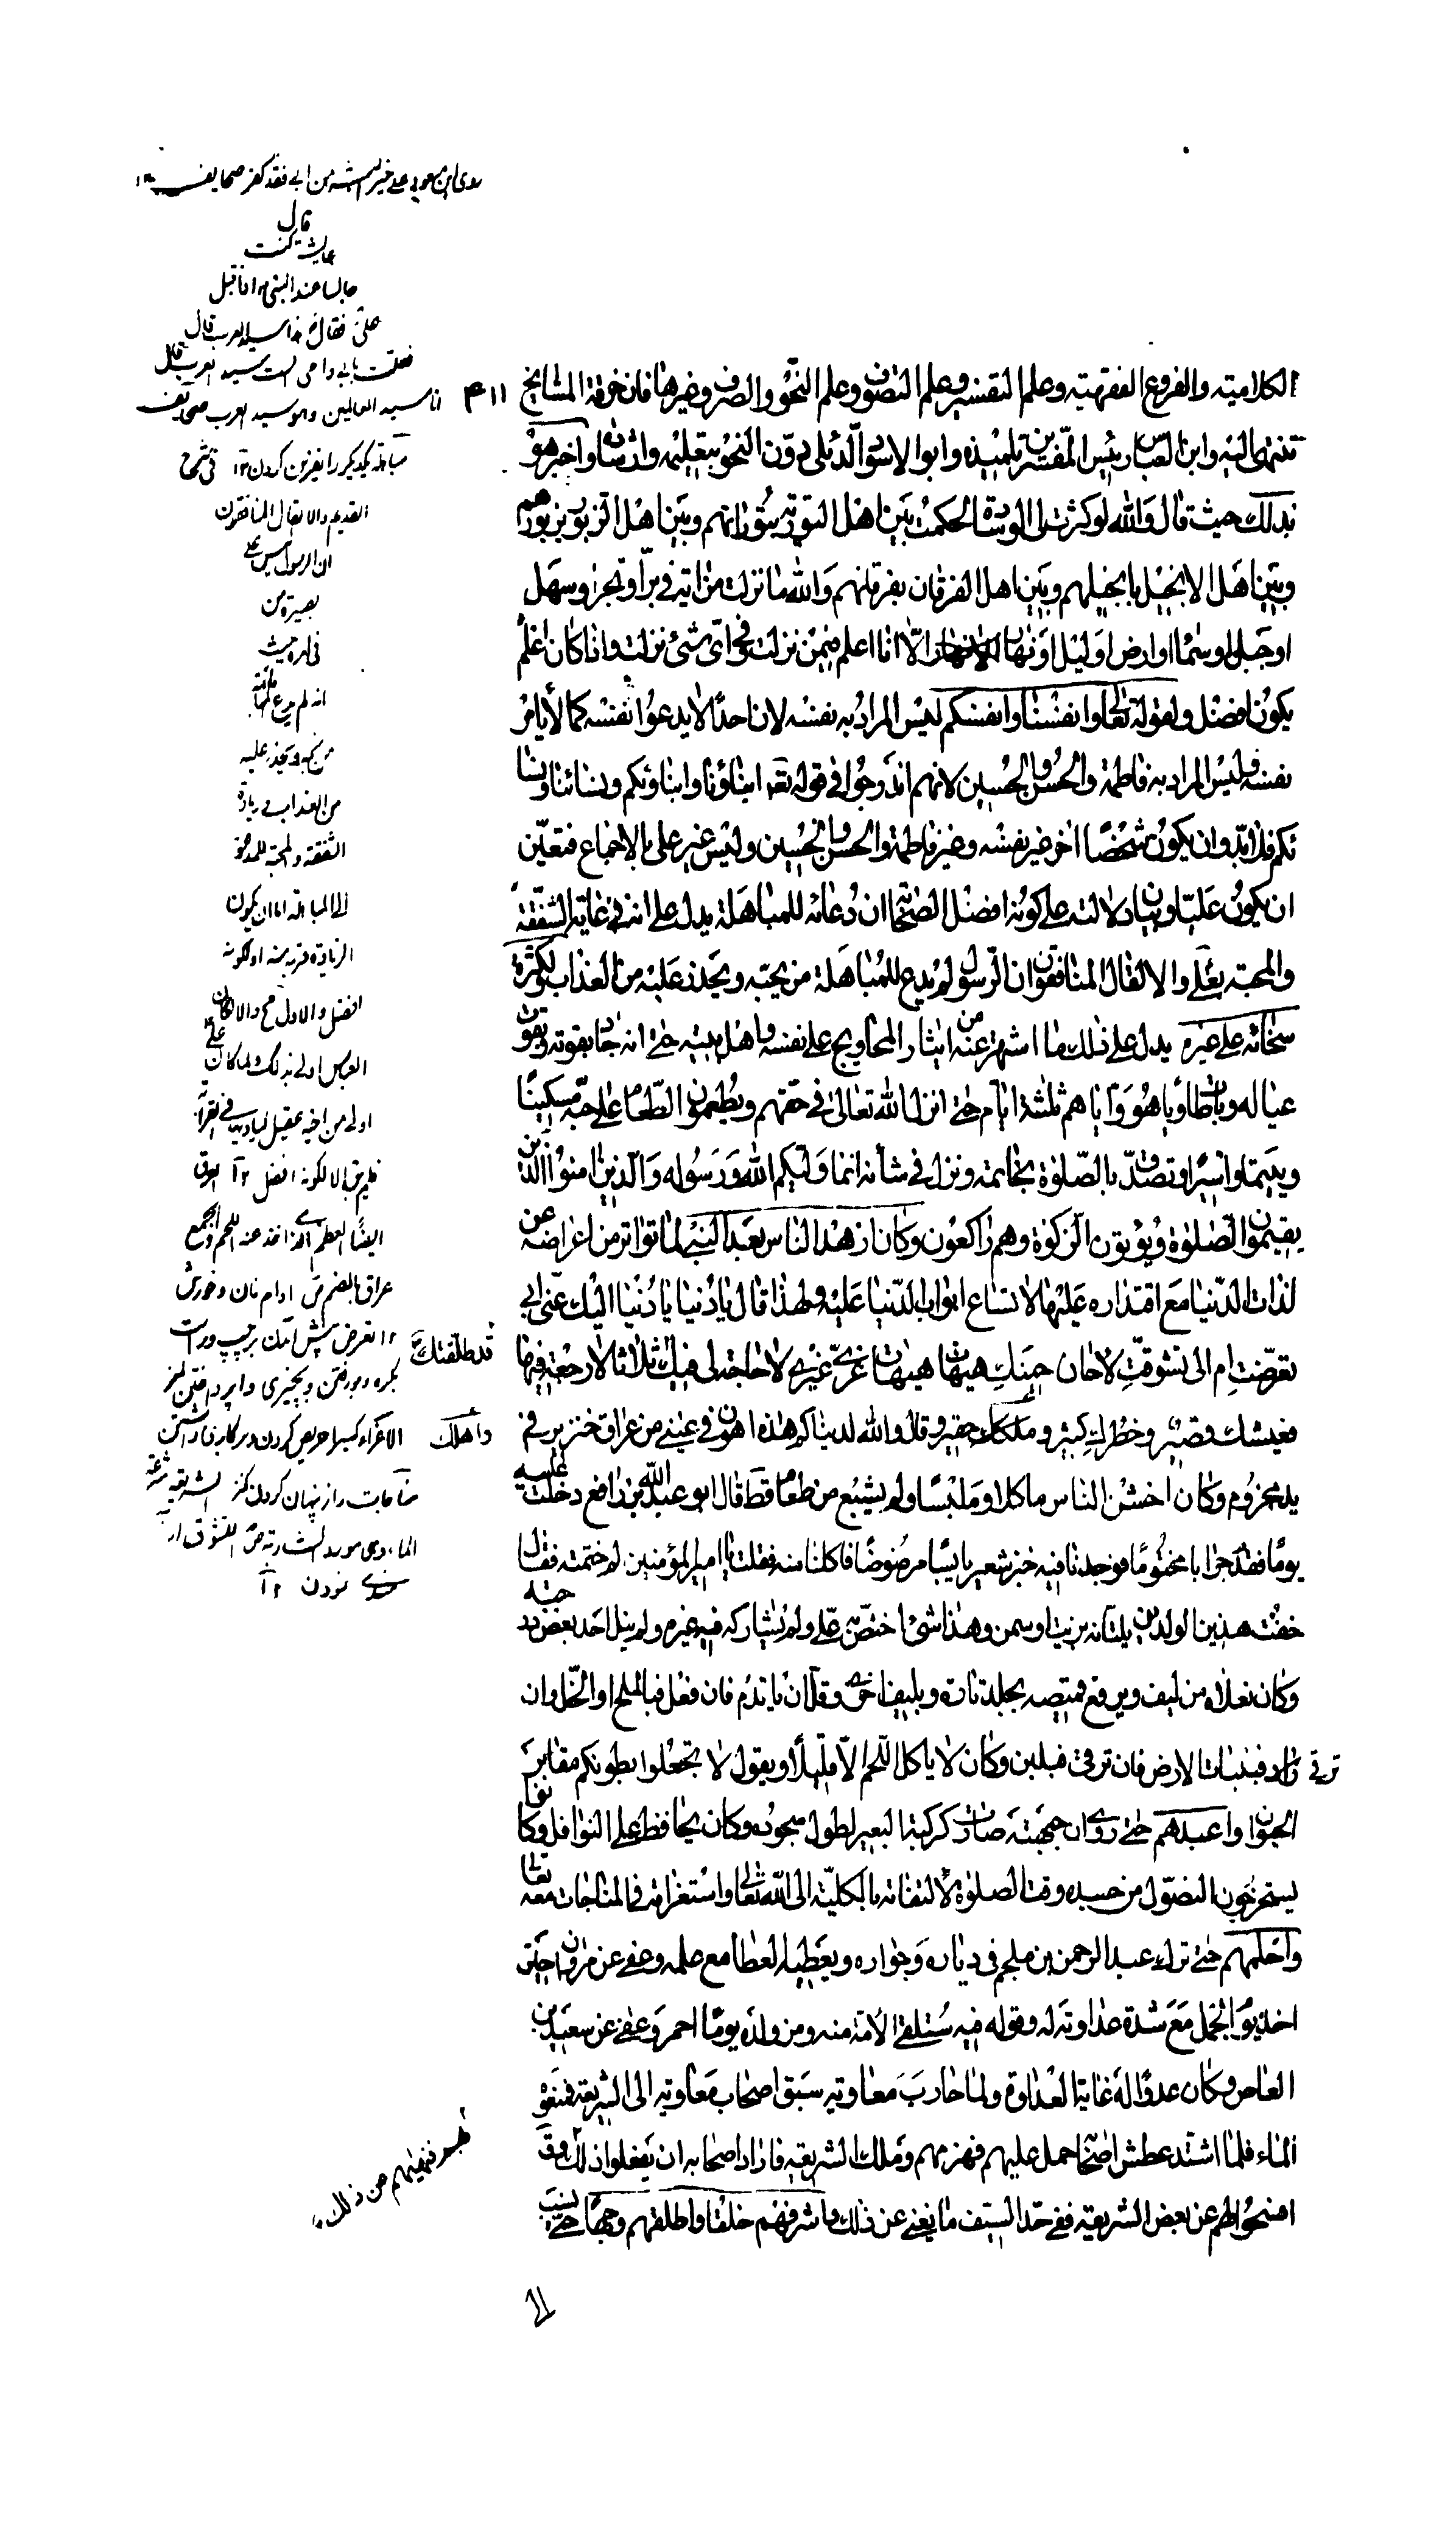 الكلامیة والفروع الفقهیة وعلم التفسیر وعلم التصوف وعلم النحو والصرف وغیرها فان خرقة المشایخ
تنتهی الیه وابن العباس رئیس المفسرین تلمیذه وابو الاسود الدئلی دوّن النحو بتعلیمه وارشاده واخبر هو
بذلک حیث قال والله لو کثرت لی الوسادة لحکمت بین اهل التوریة بتوراتهم وبین اهل الزبور بزبورهم
وبین اهل الانجیل بانجیلهم وبین اهل الفرقان بفرقانهم والله ما نزلت من آیة فی برّ او بحر او سهل
او جبل او سماء او ارض او لیل او نهار الّا انا اعلم فیمن نزلت وفی ایّ شیء نزلت واذا کان اعلم
یکون افضل ولقوله تعالی وانفسنا وانفسکم لیس المراد به نفسه لان احدا لا یدعوا نفسه کما لا یامر
نفسه ولیس المراد به فاطمة والحسن والحسین لانهم اندرجوا فی قوله تعه ابناؤنا وابناؤکم ونسائنا ونسا
ئکم فلا بدّ وان یکون شخصًا آخر غیر نفسه وغیر فاطمة والحسن والحسین ولیس غیر علی بالاجماع فتعیّن
ان یکون علیّا وبیان دلالته علی کونه افضل الصحابة ان دعائه للمباهلة یدل علی انه فی غایة الشفقة
والمحبة بعلی والا لقال المنافقون ان الرسول لم یدع للمباهلة من یحبّه ویحذر علیه من العذاب ولکثرة
سخائه علی غیره یدل علی ذلک ما اشتهر عنه من ایثار المحاویج علی نفسه واهل بیته حتی انه جاد بقوته وقوت
عیاله وبات طاویا هو وایاهم ثلثة ایام حتی انزل الله تعالی فی حقهم ویطعمون الطعام علی حبّه مسکینًا
ویتیمًا واسیرًا وتصدّق بالصلوة بخاتمه ونزل فی شأنه انما ولیکم الله ورسوله والذین امنوا الذین
یقیمون الصلوة ویؤتون الزکوة وهم راکعون وکان ازهد الناس بعد النبی لما تواتر من اعراضه عن
لذات الدنیا مع اقتداره علیها لاتساع ابواب الدنیا علیه ولهذا قال یا دنیا یا دنیا الیک عنی ابی
تعرّضت ام الی تشوقت لا حان حینک هیهات هیهات غرّی غیری لا حاجة لی فیک قد طلقتک ثلاثا لا رجعة فیها
فعیشک قصیر وخطرک کبیر واملک حقیر وقال والله لدنیاکم هذه اهون فی عینی من عراق خنزیر فی
ید مجزوم وکان اخشن الناس ماکلا وملبسًا ولم یشبع من طعام قط قال ابو عبد الله بن رافع دخلت علیه
یومًا فقدّم جرابا مختومًا فوجدنا فیه خبز شعیر یابسًا مرضوضًا فاکلنا منه فقلت یا امیر المؤمنین لم ختمته فقال
خفت هذین الولدین یلتانه بزیت او سمن وهذا شیء اختصّ به علی ولم یشارکه فیه غیره ولم ینل احد بعض درجته
وکان نعلاه من لیف ویرقع قمیصه بجلد تارة وبلیف اخری وقلّ ان یاتدم فان فعل فبالملح او الخل وان
ترقی فبنبات الارض فان ترقی فبلبن وکان لا یاکل اللحم الّا قلیلًا ویقول لا تجعلوا بطونکم مقابر
الحیوان واعبدهم حتی روی ان جبهته صارت کرکبة البعیر لطول سجوده وکان یحافظ علی النوافل وکانوا
یستخرجون النصول من جسده وقت الصلوة لالتفاته بالکلیّة الی الله تعالی واستغراقه فی المناجات معه تعالی
واحلمهم حتی ترک عبد الرحمن بن ملجم فی دیاره وجواره ویعطیه العطا مع علمه وعفی عن مروان حین
اخذ یوم الجمل مع شدة عداوته له وقوله فیه ستلقی الامة منه ومن ولده یومًا احمر وعفی عن سعید بن
العاص وکان عدوًا له غایة العداوة ولما حارب معاویه سبق اصحاب معاویه الی الشریعة فمنعوه
الماء فلما اشتد عطش اصحابه حمل علیهم فهزمهم وملک الشریعه فاراد اصحابه ان یفعلوا ذلک وقال
افسحوا لهم عن بعض الشریعه ففی حدّ السیف ما یغنی عن ذلک واشرفهم خلقا واطلقهم وجهًا حتی نسب
قال
عایشة کنت
جالسا عند النبی اذ اقبل
علی فقال هذا سید العرب قال
فقلت بابی وامی الست سید العرب قال
انا سید العالمین وهو سید العرب
مباهله یکدیکر را نفرین کردن
القدیم والا لقال المنافقون
ان الرسول لیس علی
بصیرة من
امره حیث
انه لم یدع للمباهلة
من یحبه ویحذر علیه
من العذاب زیادة
الشفقة والمحبة للمدعو
الی المباهلة اما ان یکون
افضل والاول مح والا لکان
العباس اولی بذلک ولما کان علی
اولی من اخیه عقیل
فلم یبق الا لکونه افضل
فنهیهم عن ذلک